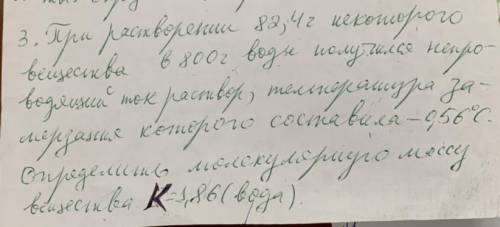 3. При растворении 82,4г некоторого
вещества в 800г воды получился непро-
водящий ток раствор, температура за-
мерзания которого составила -0,56°С.
Определить молекулярную массу
вещества К=1,86 (вода).